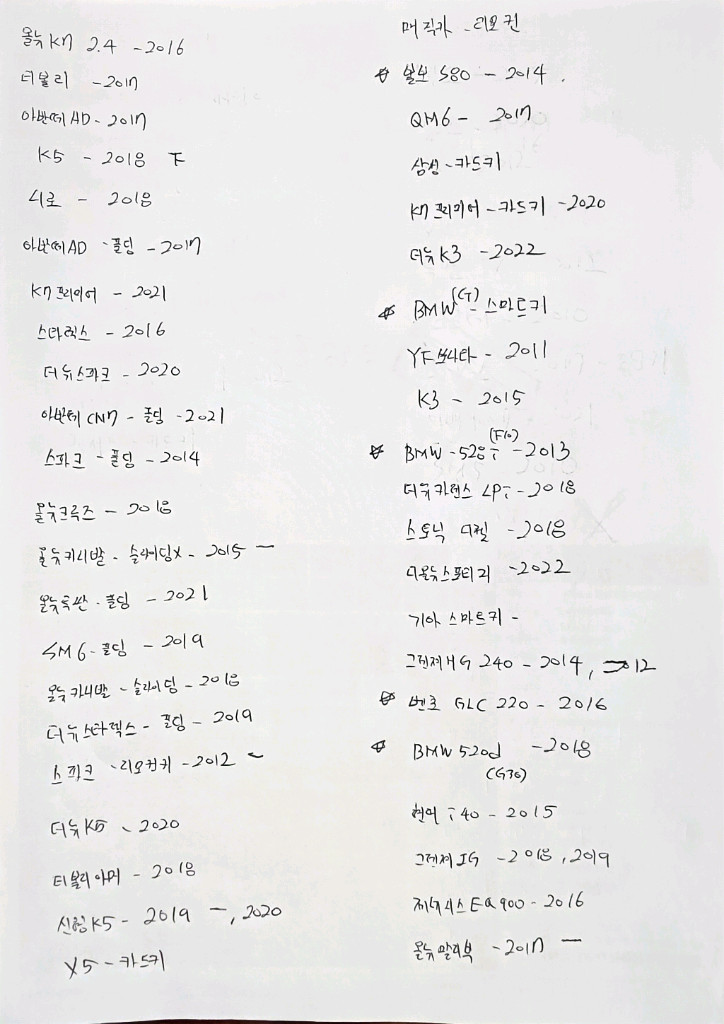 올뉴K7 2.4 - 2016
티볼리 - 2017
아반떼AD - 2017
K5 - 2018 下
니로 - 2018
아반떼AD - 폴딩 - 2017
K7 프리미어 - 2021
스타렉스 - 2016
더뉴스파크 - 2020
아반떼 CN7 - 폴딩 - 2021
스파크 - 폴딩 - 2014
올뉴크루즈 - 2018
올뉴카니발 - 슬라이딩X - 2015 -
올뉴투싼 - 폴딩 - 2021
SM6 - 폴딩 - 2019
올뉴카니발 - 슬라이딩 - 2018
더뉴스타렉스 - 폴딩 - 2019
스파크 - 리모컨키 - 2012 -
더뉴K5 - 2020
티볼리아머 - 2018
신형K5 - 2019 -, 2020
X5 - 카드키
매직카 - 리모컨
볼보 S80 - 2014.
QM6 - 2017
삼성 - 카드키
K7 프리미어 - 카드키 - 2020
더뉴K3 - 2022
BMW(G) - 스마트키
YF쏘나타 - 2011
K3 - 2015
BMW - 528i (F10) - 2013
더뉴카렌스 LPi - 2018
스토닉 디젤 - 2018
디올뉴스포티지 - 2022
기아 스마트키 -
그렌져HG 240 - 2014, 2012
벤츠 GLC 220 - 2016
BMW 520d - 2018
(G30)
현대 i40 - 2015
그렌져IG - 2018, 2019
제네시스 EQ900 - 2016
올뉴말리부 - 2017 -